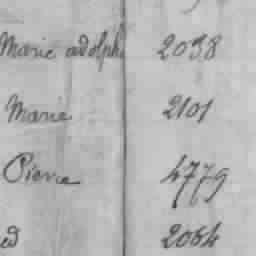 Marie adolph 2038
Marie 2101
Pierre 4779
ed 2064